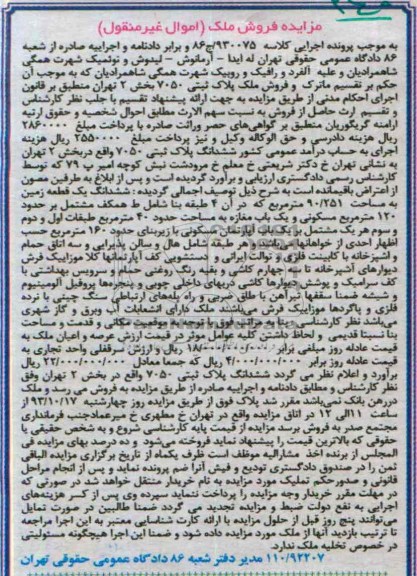 مزایده فروش ملک (اموال غیرمنقول)
به موجب پرونده اجرایی کلاسه ۹۳۰۰۷۵/ج۸۶ و برابر دادنامه و اجراییه صادره از شعبه
۸۶ دادگاه عمومی حقوقی تهران له آیدا - آرمانوش - لیدوش و نوئمیک شهرت همگی
شاهمرادیان و علیه آلفرد و رافیک و روبیک شهرت همگی شاهمرادیان که به موجب آن
حکم بر تقسیم ماترک و فروش ملک پلاک ثبتی ۷۰۵۰ بخش ۲ تهران منطبق بر قانون
اجرای احکام مدنی از طریق مزایده به جهت ارائه پیشنهاد تقسیم با جلب نظر کارشناس
و تقسیم ارث حاصل از فروش به نسبت سهم الارث مطابق احوال شخصیه و حقوق ارثیه
ارامنه گریگوریان منطبق بر گواهی‌های حصر وراثت صادره با پرداخت مبلغ ۲۸۶۰۰۰۰
ریال هزینه دادرسی و حق الوکاله وکیل و نیز پرداخت مبلغ ۲۵۵۰۰۰۰ ریال هزینه
اجرای به حساب درآمد عمومی کشور ششدانگ پلاک ثبتی ۷۰۵۰ واقع دربخش ۲ تهران
به نشانی تهران خ دکتر شریعتی خ معلم خ مرودشت نبش کوچه امیر پ ۷۹ که توسط
کارشناس رسمی دادگستری ارزیابی و برآورد گردیده است و پس از ابلاغ به طرفین مصون
از اعتراض باقیمانده است به شرح ذیل توصیف اجمالی گردیده : ششدانگ یک قطعه زمین
به مساحت ۹۰/۲۵۱ مترمربع که در آن ۴ طبقه بنا شامل ط همکف مشتمل بر حدود
۱۲۰ مترمربع مسکونی و یک باب مغازه به مساحت حدود ۴۰ مترمربع طبقات اول و دوم
و سوم هر یک مشتمل بر یک باب آپارتمان مسکونی با زیربنای حدود ۱۶۰ مترمربع حسب
اظهار احدی از خواهانها می‌باشند هر طبقه شامل هال و سالن پذیرایی و سه اتاق حمام
و آشپزخانه با کابینت فلزی و توالت ایرانی و دستشویی کف آپارتمانها کلا موزاییک فرش
دیوارهای آشپزخانه تا سه چهارم کاشی و بقیه رنگ روغنی حمام و سرویس بهداشتی با
کف سرامیک و پوشش دیوارها کاشی دربهای داخلی چوبی و پنجره‌ها پروفیل آلومینیوم
و شیشه ضمنا سقفها تیرآهن با طاق ضربی و راه پله‌های ارتباطی سنگ چینی با نرده
فلزی و پاگردها موزاییک فرش می‌باشند ملک دارای انشعابات آب وبرق و گاز شهری
می‌باشد نظر کارشناسی
بنا نسبتا قدیمی و لحاظ داشتن کلیه عوامل موثر در قیمت ارزش عرصه و اعیان ملک به
قیمت عادله روز مبلغی برابر ۱۸/۰۰۰/۰۰۰/۰۰۰ ریال و ارزش سرقفلی واحد تجاری به
قیمت عادله روز برابر ۴/۰۰۰/۰۰۰/۰۰۰ ریال که جمعا معادل ۲۲/۰۰۰/۰۰۰/۰۰۰ ریال
برآورد و اعلام نظر می گردد ششدانگ پلاک ثبتی ۷۰۵۰ واقع در بخش ۲ تهران وفق
نظر کارشناس و مطابق دادنامه و اجراییه صادره از طریق مزایده به فروش می رسد و ملک
دررهن بانک نمی‌باشد مقرر شد پلاک فوق از طریق مزایده روز چهارشنبه ۹۳/۱۰/۱۷ از
ساعت ۱۱الی ۱۲ در اتاق مزایده واقع در تهران خ مطهری خ میرعمادجنب فرمانداری
مجتمع صدر به فروش برسد مزایده از قیمت پایه کارشناسی شروع و به شخص حقیقی یا
حقوقی که بالاترین قیمت را پیشنهاد نماید فروخته می‌شود و ده درصد بهای مزایده فی
المجلس از برنده اخذ مشارالیه موظف است ظرف یکماه از تاریخ برگزاری مزایده الباقی
ثمن را در صندوق دادگستری تودیع و فیش آنرا ضم پرونده نماید و پس از انجام مراحل
قانونی و صدورحکم تملیک مورد مزایده به نام خریدار منتقل خواهد شد در صورتی که
در مهلت مقرر خریدار وجه مزایده را پرداخت ننماید سپرده وی پس از کسر هزینه‌های
اجرایی به نفع دولت ضبط و مزایده تجدید می گردد ضمنا طالبین در صورت تمایل
می‌توانند پنج روز قبل از حلول مزایده با ارائه کارت شناسایی معتبر به این اجرا مراجعه
تا ترتیب بازدید آنها از ملک مورد مزایده داده شود و ضمنا این اجرا هیچگونه مسئولیتی
در خصوص تخلیه ملک ندارد.
۱۱۰/۹۴۲۰۷ مدیر دفتر شعبه ۸۶ دادگاه عمومی حقوقی تهران